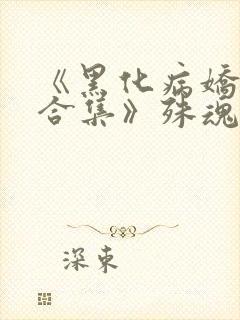 《黑化病嬌
合集》殊魂
深東